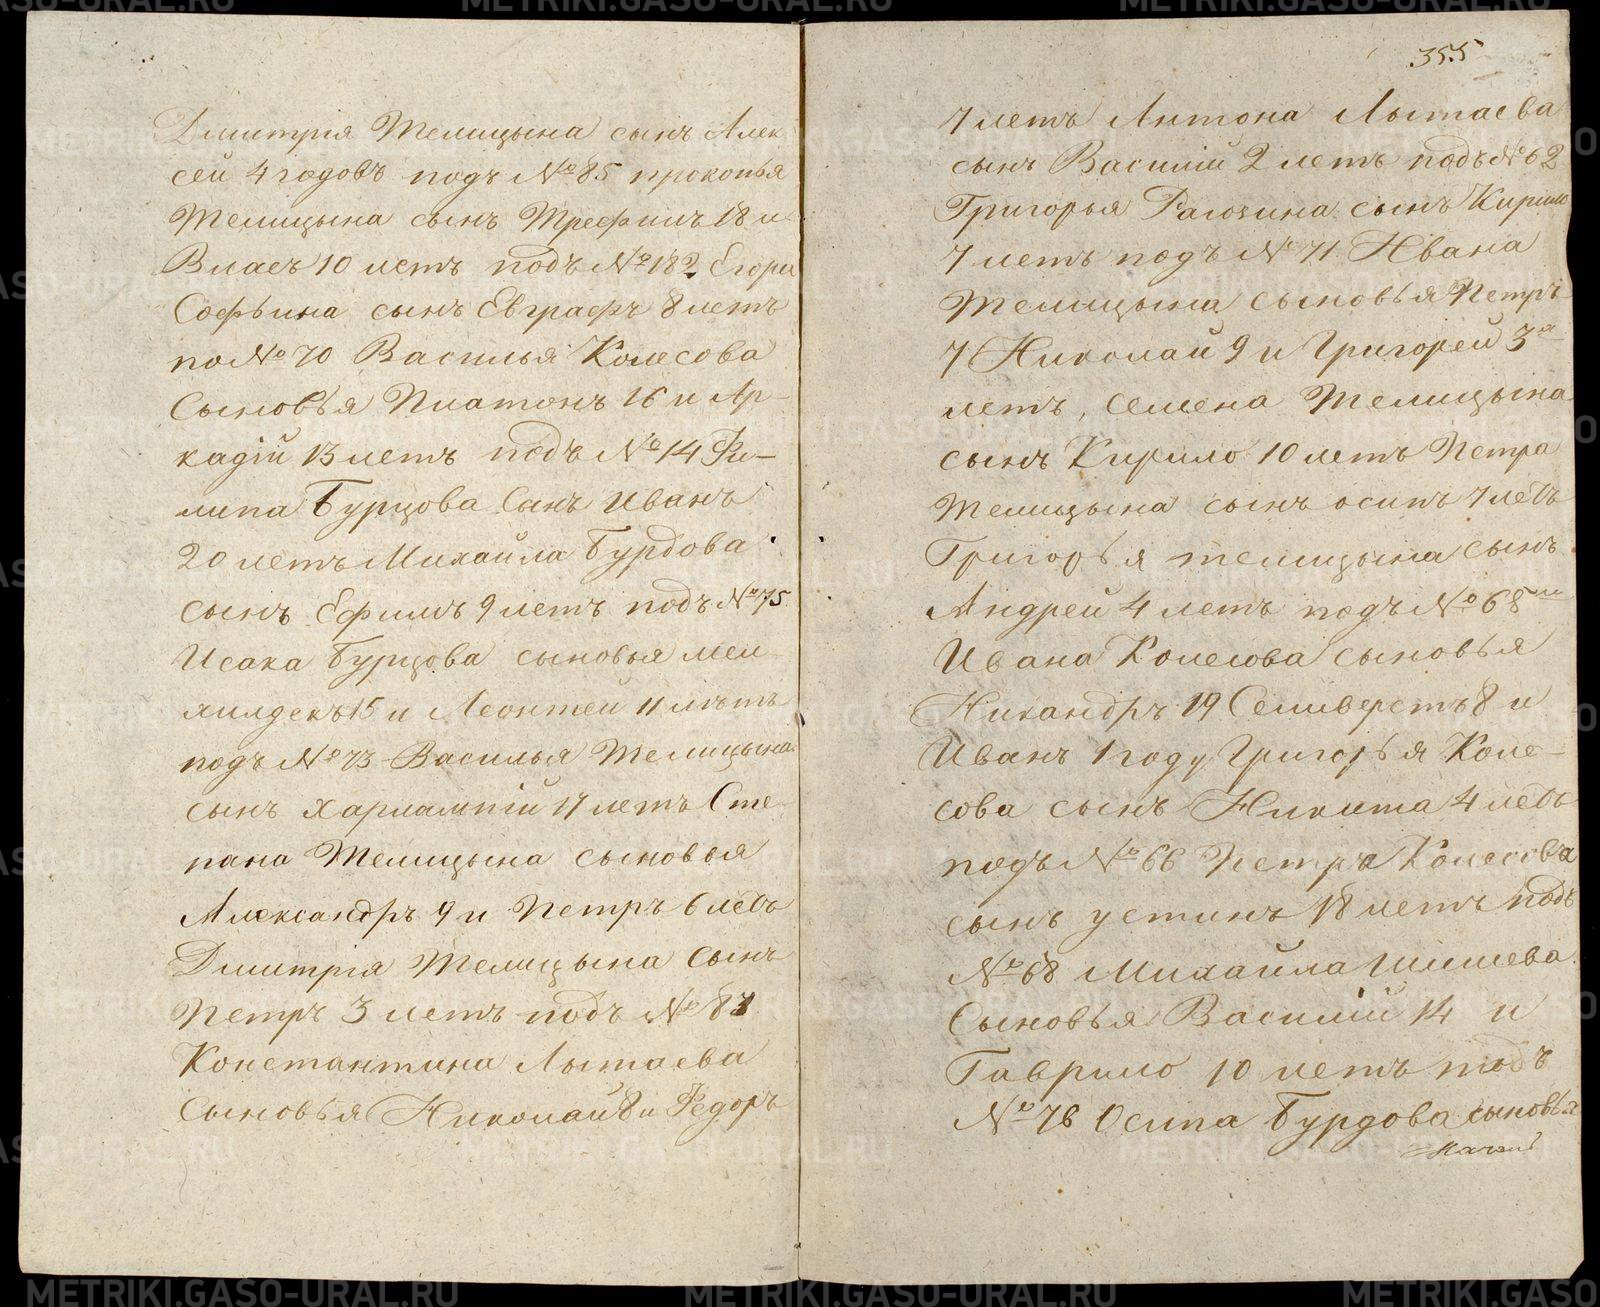 Дмитрія Телицына сынъ Алек
сей 4 годовъ подъ №85 прокопья
Телицына сынъ Трефилъ 18 и
Власъ 10 летъ подъ №182 Егора
Софьина сынъ Евграфъ 8 летъ
по №70 Василья Колесова
Сыновья Платонъ 16 и Ар-
кадій 13 летъ подъ №14 Фи-
липа Бурцова Сынъ Иванъ
20 летъ Михаила Бурдова
сынъ Ефимъ 9 летъ подъ №75
Исака Бурцова сыновья
15 и Леонтей 11 летъ
подъ №73 Василья Телицына
сынъ Харлампій 17 летъ Сте-
пана Телицына сыновья
Александръ 9 и Петръ 6 летъ
Дмитрія Телицына Сынъ
Петръ 3 летъ подъ №81
Константина Лытаева
Сыновья Николай 8 и Федоръ
355
7 летъ Антона Лытаева
сынъ Василій 2 летъ подъ №62
Григорья Рагозина сынъ Кирило
7 летъ подъ №71 Ивана
Телицына сыновья Петръ
7 Николай 9 и Григорей 3
летъ, Семена Телицына
сынъ Кирило 10 летъ Петра
Телицына сынъ осипъ 7 летъ
Григорья телицына сынъ
Андрей 4 летъ подъ №68
Ивана Колесова сыновья
Никандръ 19 Селиверстъ 8 и
Иванъ 1 году Григорья Коле-
сова сынъ Никита 4 летъ
подъ №66 Петра Колесова
сынъ устинъ 18 летъ подъ
№68 Михаила Шишева
Сыновья Василій 14 и
Гаврило 10 летъ подъ
№76 Осипа Бурдова сыновья